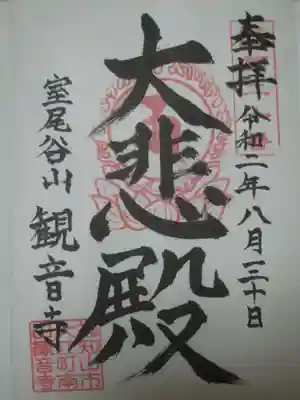 奉拝
令和二年八月三十日
大悲殿
室尾谷山
観音寺